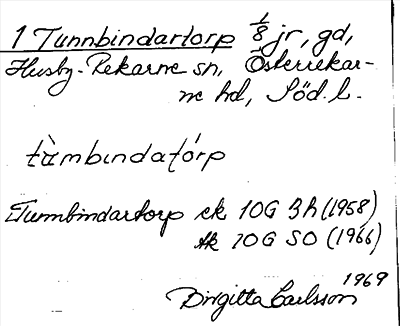 1 Tunnbindartorp 1/8 jr, gd,
Husby-Rekarne sn, Österrekar-
ne hd, Söd. l.
tùmbındató́rp
Tunnbindartorp ek 10G 3h (1958)
tk 10G SO (1966)
Birgitta Carlsson 1969